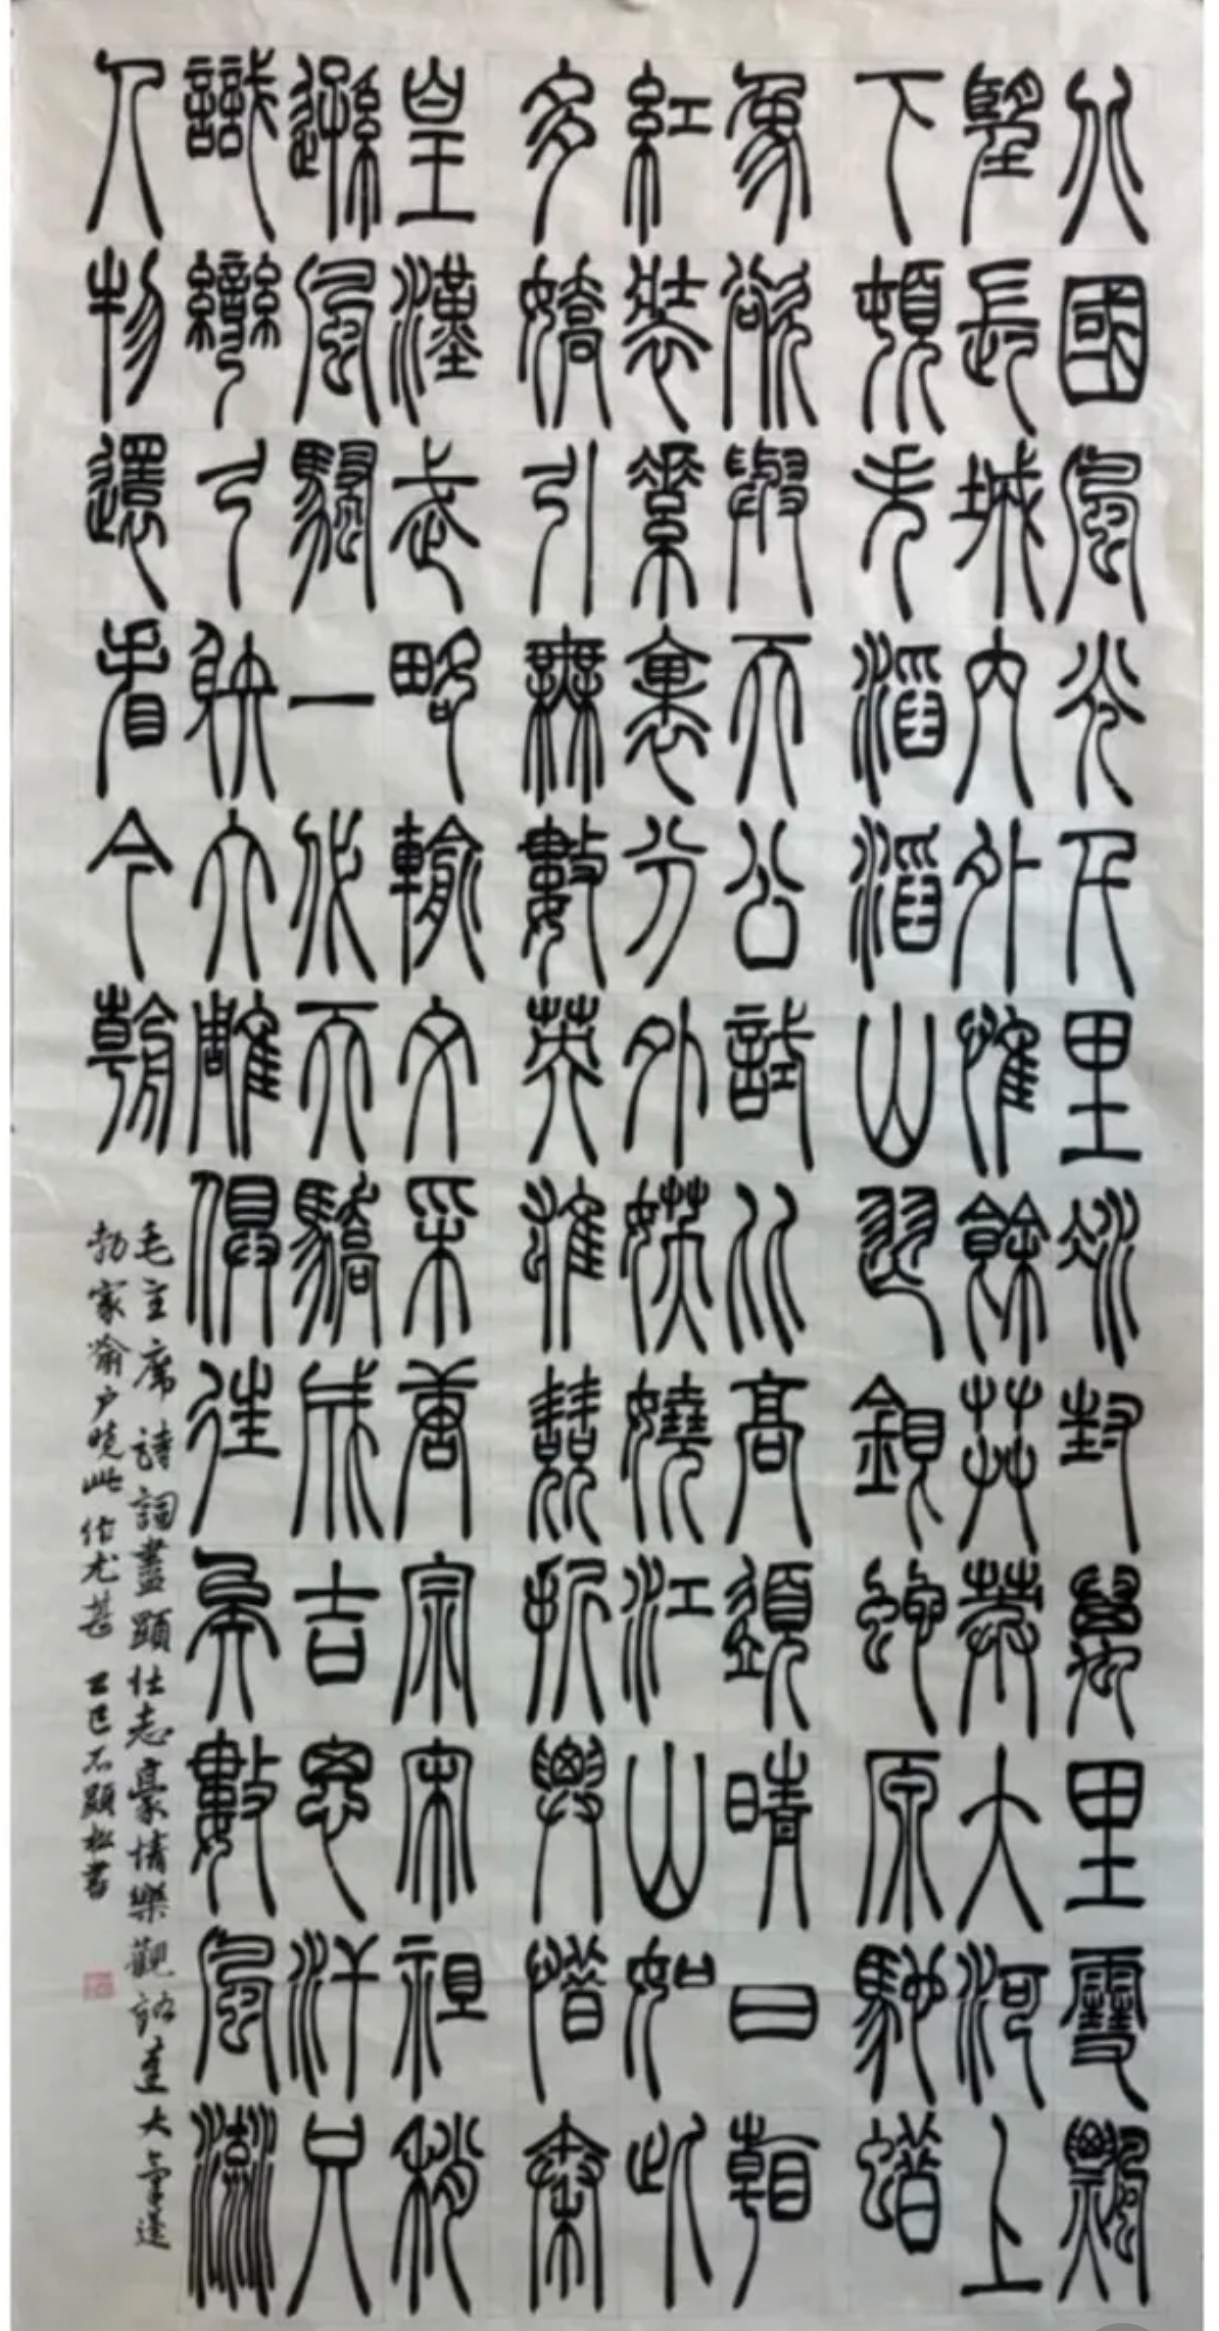 北國風光千里冰封萬里雪飄
望長城內外惟餘莽莽大河上
下頓失滔滔山舞銀蛇原馳蠟
象欲與天公試比高須晴日看
紅裝素裹分外妖嬈江山如此
多嬌引無數英雄競折腰惜秦
皇漢武略輸文采唐宗宋祖稍
遜風騷一代天驕成吉思汗只
識彎弓射大雕俱往矣數風流
人物還看今朝
毛主席詩詞盡顯壯志豪情樂觀豁達大氣蓬
勃家喻户曉此作尤甚 乙巳石顯松書